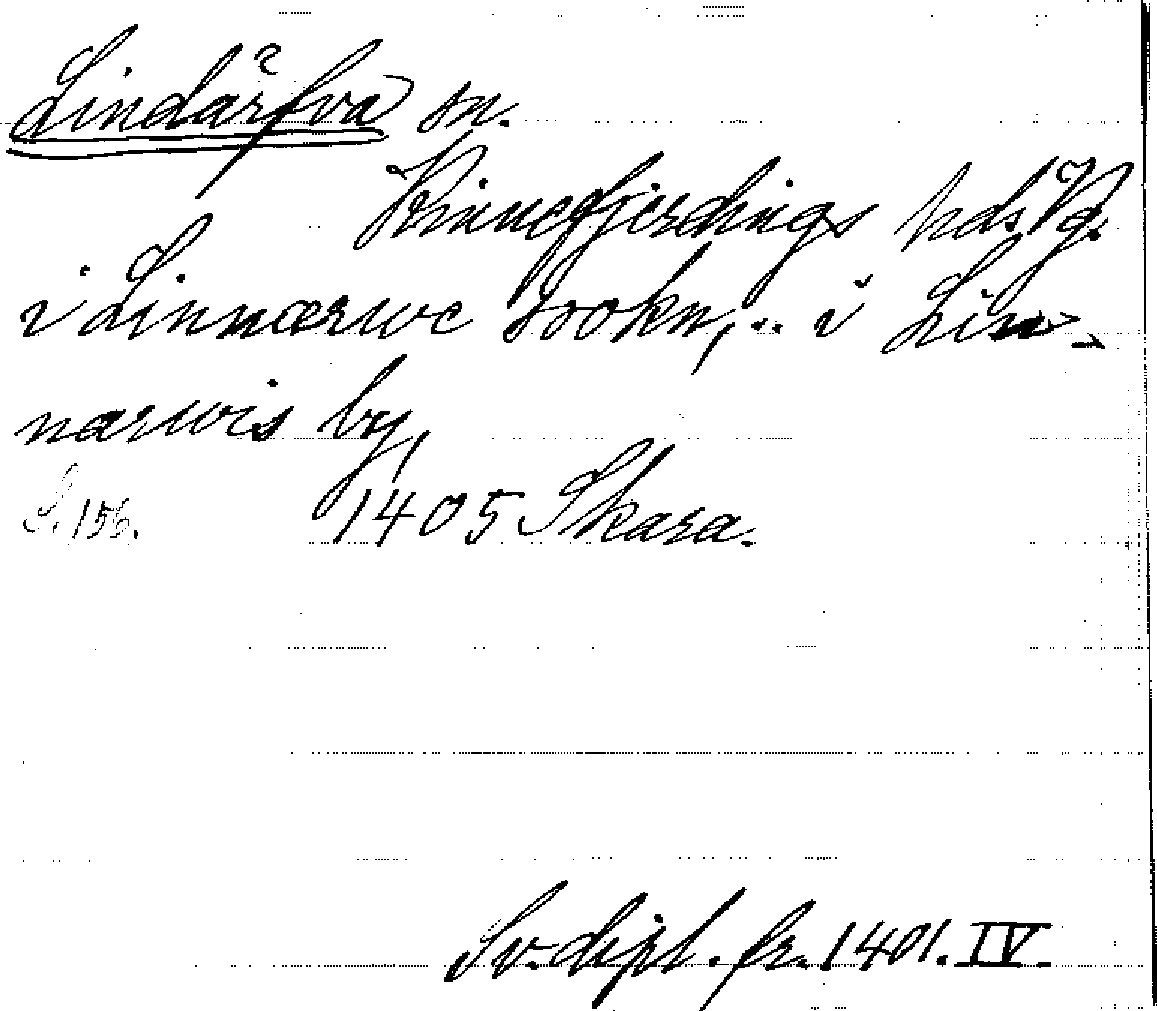 Lindärfva sn.
Kinnefjerdings hds Vg.
i Linnærwe sookn, .. i Lin-
narwis by,
S. 156. 1405 Skara.
Sv. dipl. fr. 1401. IV.